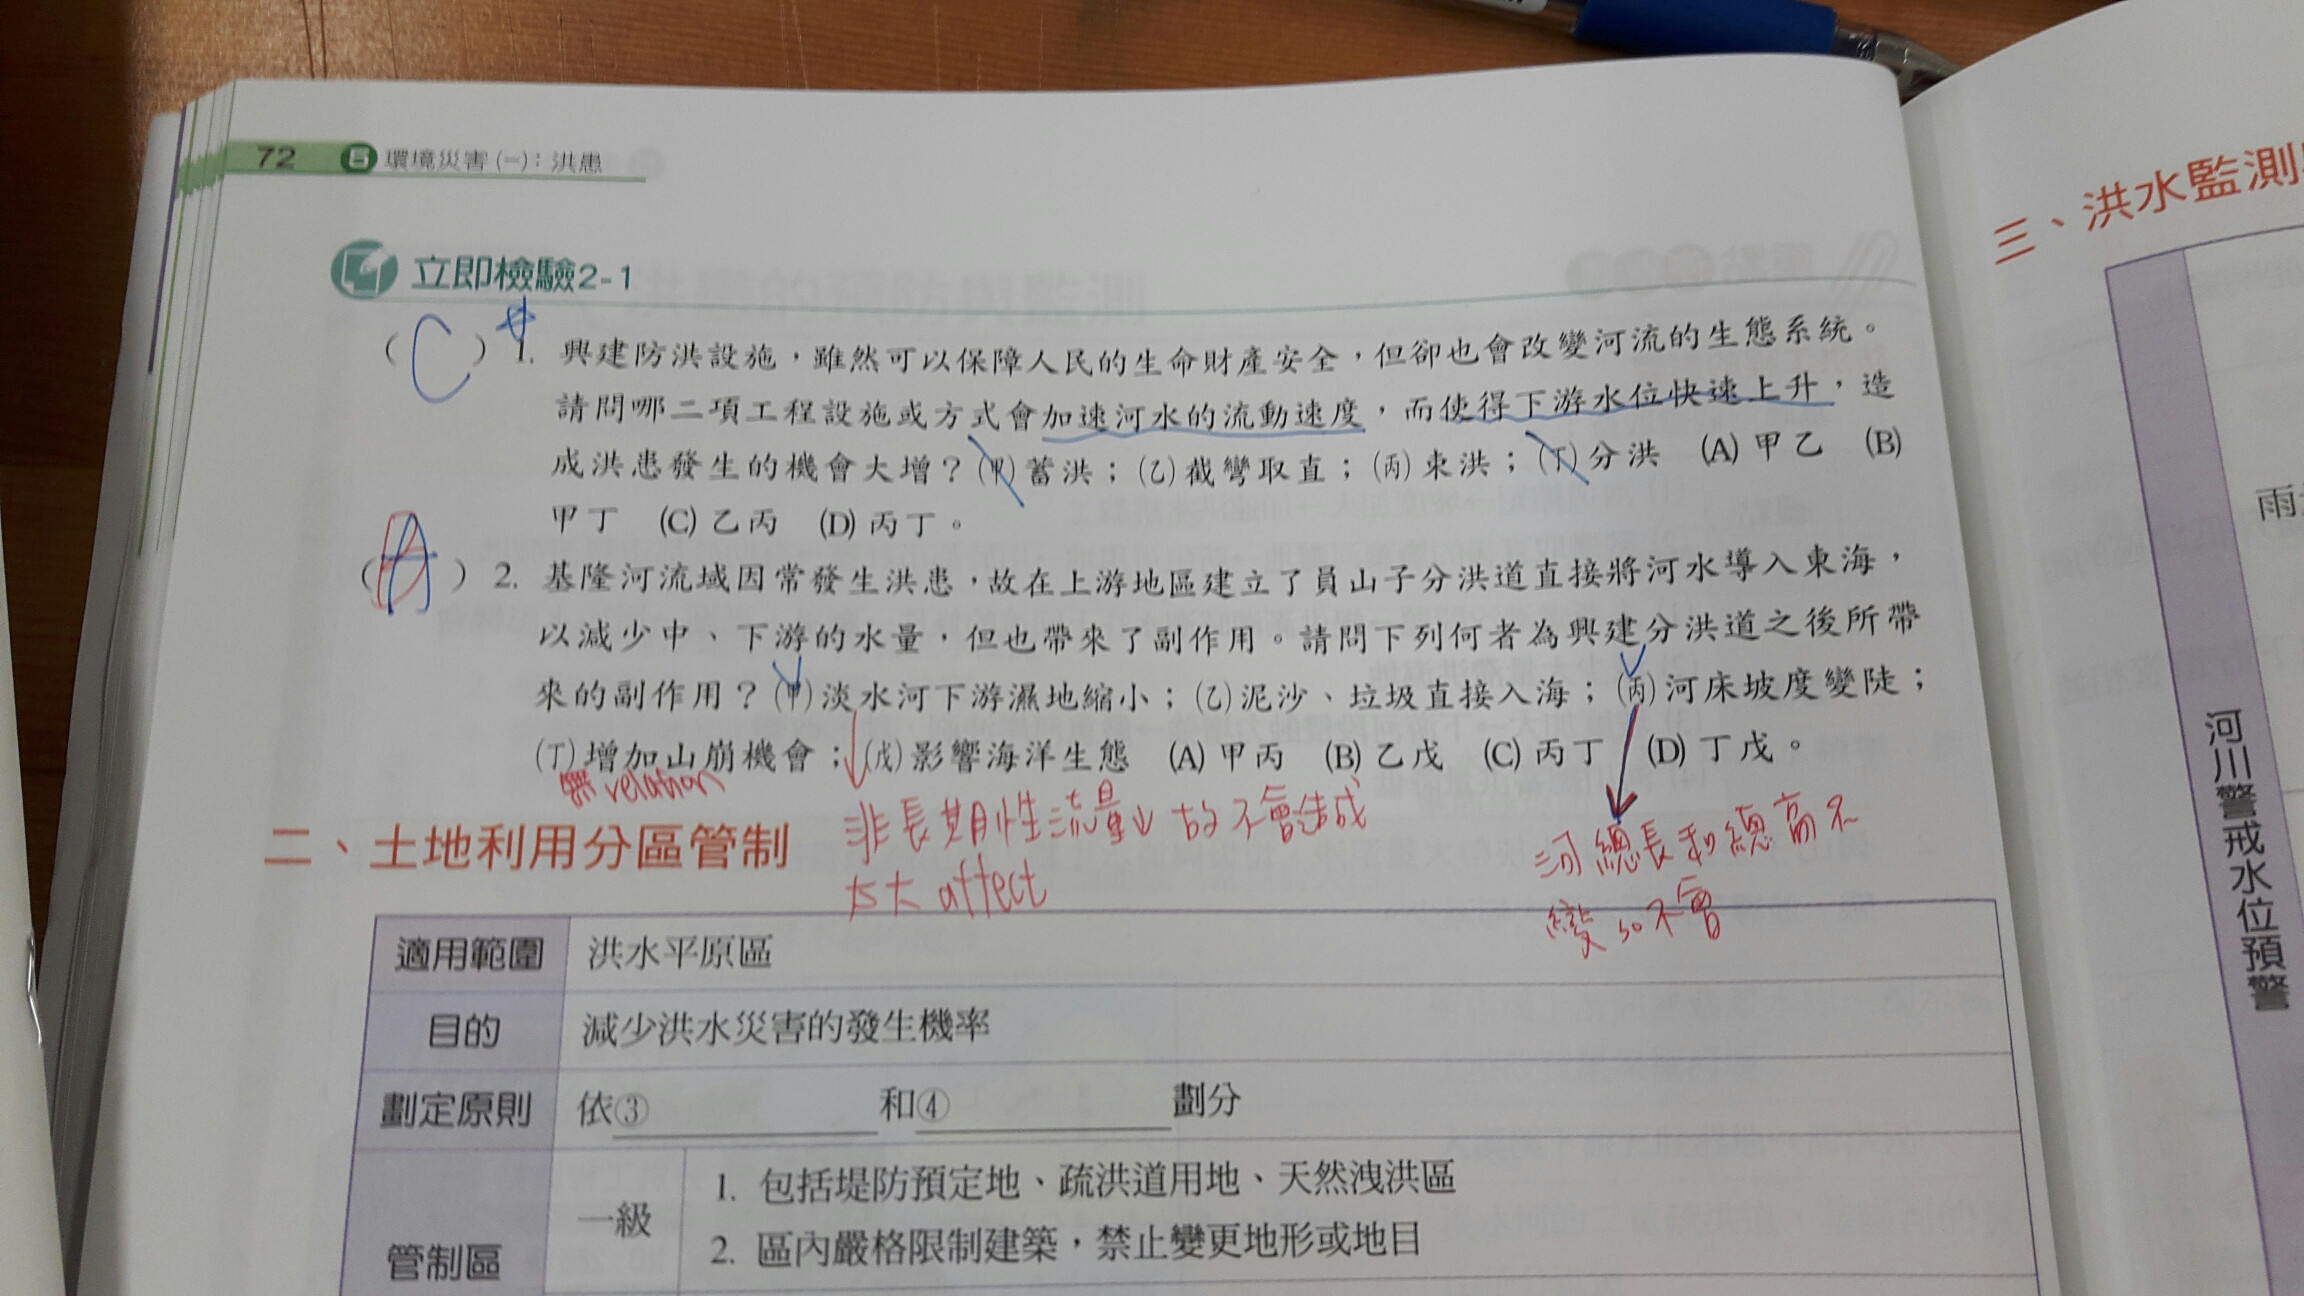 72 5 環境災害(一)：洪患
立即檢驗2-1
( C ) 1. 興建防洪設施，雖然可以保障人民的生命財產安全，但卻也會改變河流的生態系統。
請問哪二項工程設施或方式會加速河水的流動速度，而使得下游水位快速上升，造
成洪患發生的機會大增？(甲)蓄洪；(乙)截彎取直；(丙)束洪；(丁)分洪 (A)甲乙 (B)
甲丁 (C)乙丙 (D)丙丁。
( A ) 2. 基隆河流域因常發生洪患，故在上游地區建立了員山子分洪道直接將河水導入東海，
以減少中、下游的水量，但也帶來了副作用。請問下列何者為興建分洪道之後所帶
來的副作用？(甲)淡水河下游濕地縮小；(乙)泥沙、垃圾直接入海；(丙)河床坡度變陡；
(丁)增加山崩機會；(戊)影響海洋生態 (A)甲丙 (B)乙戊 (C)丙丁 (D)丁戊。
無relation
非長期性流量↓故不會造成
太大affect
河總長和總高不
變so不會
二、土地利用分區管制
適用範圍 洪水平原區
目的 減少洪水災害的發生機率
劃定原則 依③ 和④ 劃分
管制區 一級 1. 包括堤防預定地、疏洪道用地、天然洩洪區
2. 區內嚴格限制建築，禁止變更地形或地目
三、洪水監測
雨
河川警戒水位預警